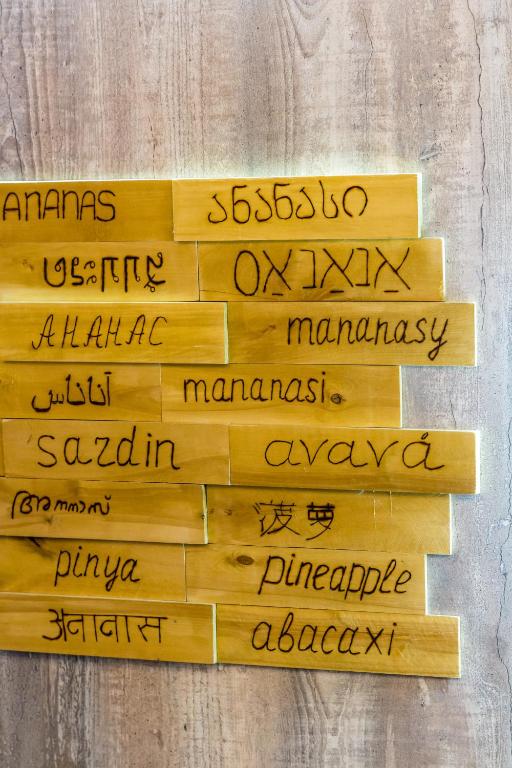 ANANAS ანანასი
אַנאַנאַס
АНАНАС mananasy
آناناس mananasi
sazdin avavá
菠萝
pinya pineapple
अनानास abacaxi